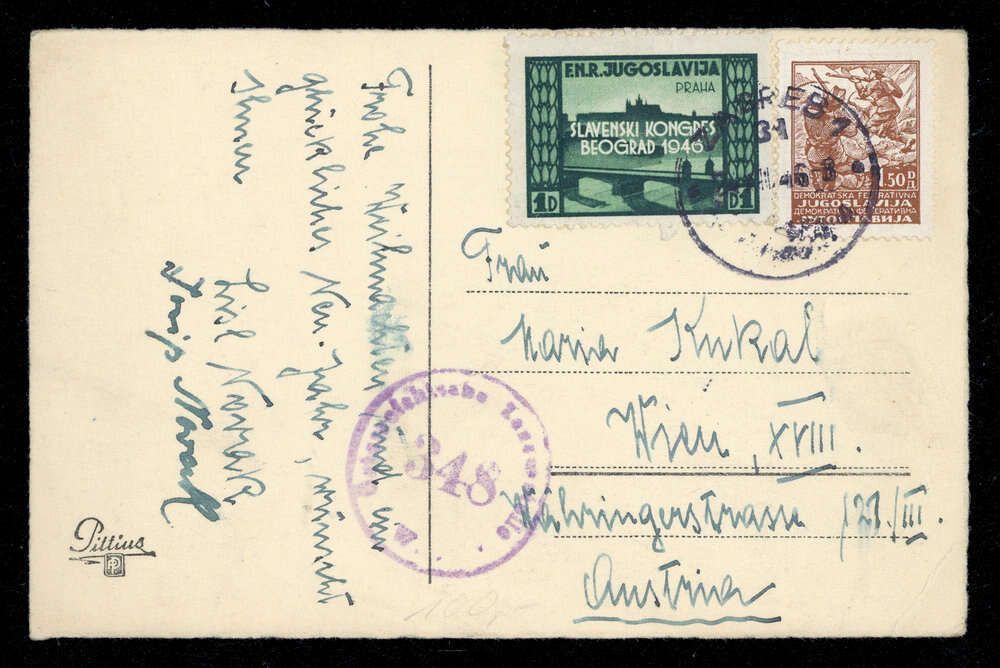 Frohe Weihnachten und ein
glückliches Neu-Jahr, wünscht
Ihnen
Lisl Novak
Josip Novak
Pittius
P
F.N.R. JUGOSLAVIJA
PRAHA
SLAVENSKI KONGRES
BEOGRAD 1946
1D D1
1.50 D
Д
DEMOKRATSKA FEDERATIVNA
JUGOSLAVIJA
ДЕМОКРАТСКА ФЕДЕРАТИВНА
ЈУГОСЛАВИЈА
ZAGREB 1
Frau
Maria Kukal
Wien, XVIII.
Währingerstrasse 121/III.
Austria
Österreichische Zensurstelle
348
100,-